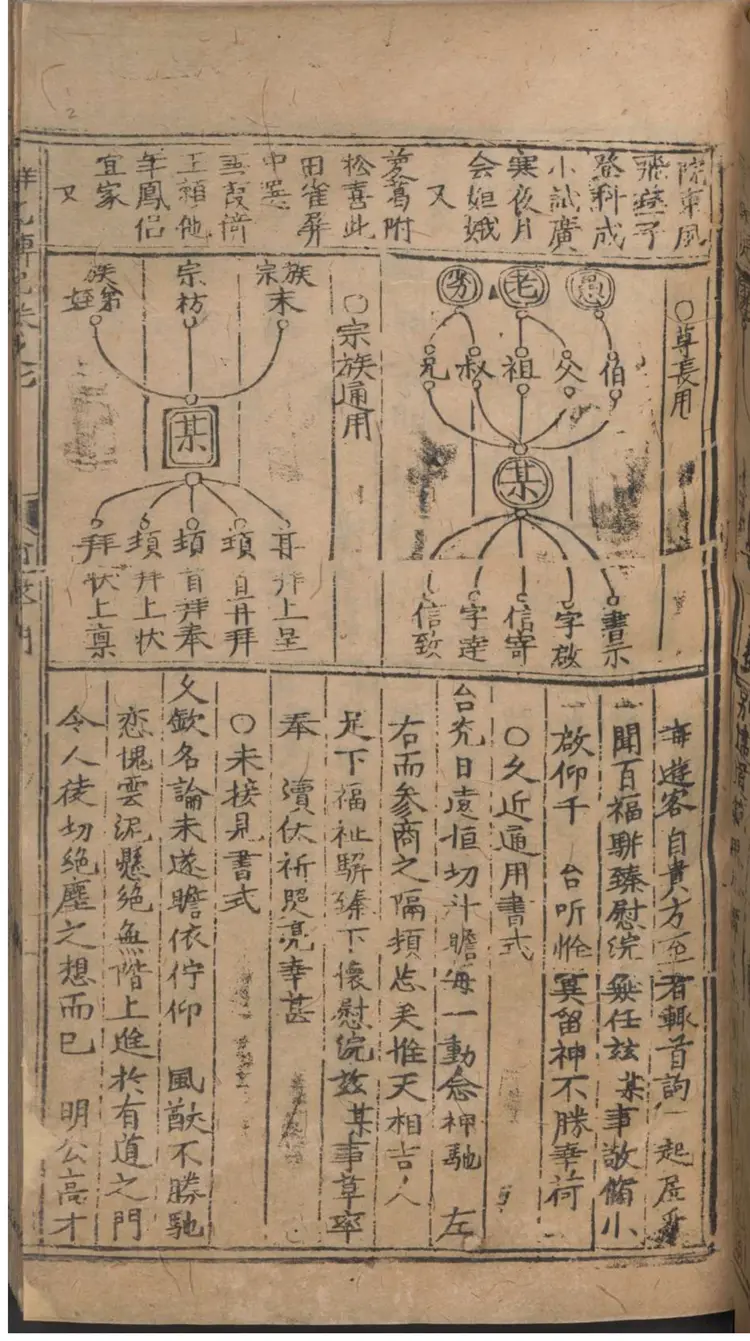 院東風
飛燕子
登科成
小試廣
寒夜月
会姮娥
又
蔦附
松喜此
田雀屏
中選
霞倚
玉顏他
年鳳侣
宜家
又
○尊長用
愚
老
劣
伯
父
祖
叔
兄
某
書示
字啟
信寄
字達
信致
○宗族通用
宗族末
宗枋
族
某
再拜上呈
頓首再拜
頓首拜奉
頓拜上状
拜状上禀
遊客自貴方至者輒首詢一起居
聞百福駢臻慰浣無任玆某事敬脩小
啟仰千 台听惟冀留神不勝幸荷
○久近通用書式
台光日遠恒切斗瞻每一動念神馳 左
右而參商之隔頻忘矣惟天相吉人
足下福祉駢臻下懷慰浣玆某事草率
奉 瀆伏祈照亮幸甚
○未接見書式
久欽名論未遂瞻依佇仰 風猷不勝馳
恋愧雲泥懸絶無階上進於有道之門
令人徒切絶塵之想而已 明公高才